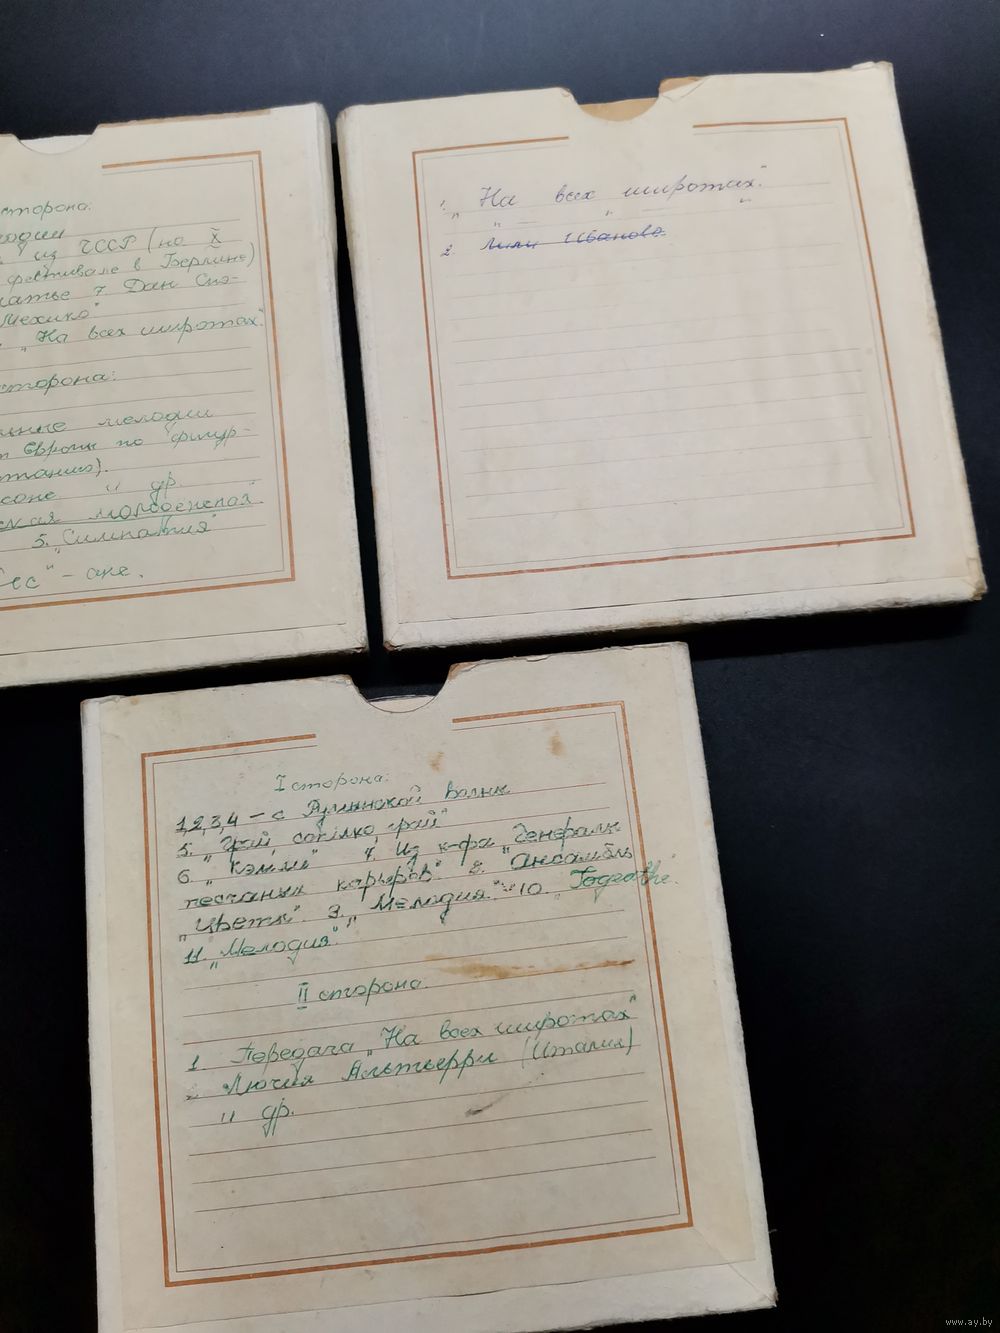 сторона:
из ЧССР (на X
фестивале в Берлине)
7. Дан Спэ-
Мехико"
"На всех широтах".
сторона:
мелодии
Европы по фигур-
и др.
молодежная
5. „Симпатия"
1. „На всех широтах".
2. „ — „ — „
Лили Иванова.
I сторона:
1,2,3,4 – с Румынской волны
5. „Грай, сопілко, грай"
6. „Кэмми" 7. Из к-фа „Генералы
песчаных карьеров". 8. „Ансамбль
„Цветы". 9. „Мелодия". 10. „Togeathe".
11. „Мелодия".
II сторона.
1. Передача „На всех широтах"
2. Лючия Альтьерри (Италия)
и др.
www.ay.by